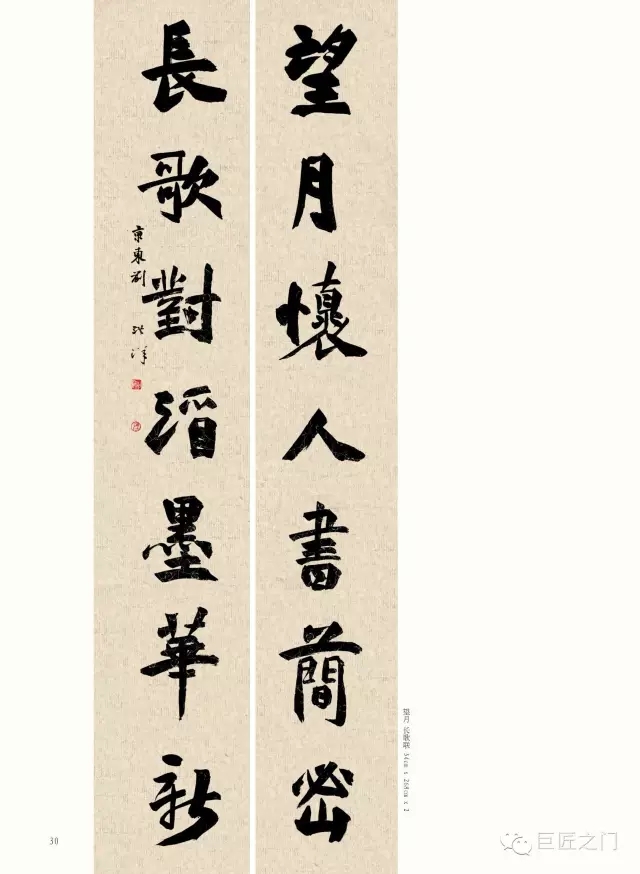 望月懷人書簡密
長歌對酒墨華新
京東劉 洪洋
望月 长歌联 34cm x 268cm x 2
30
巨匠之门